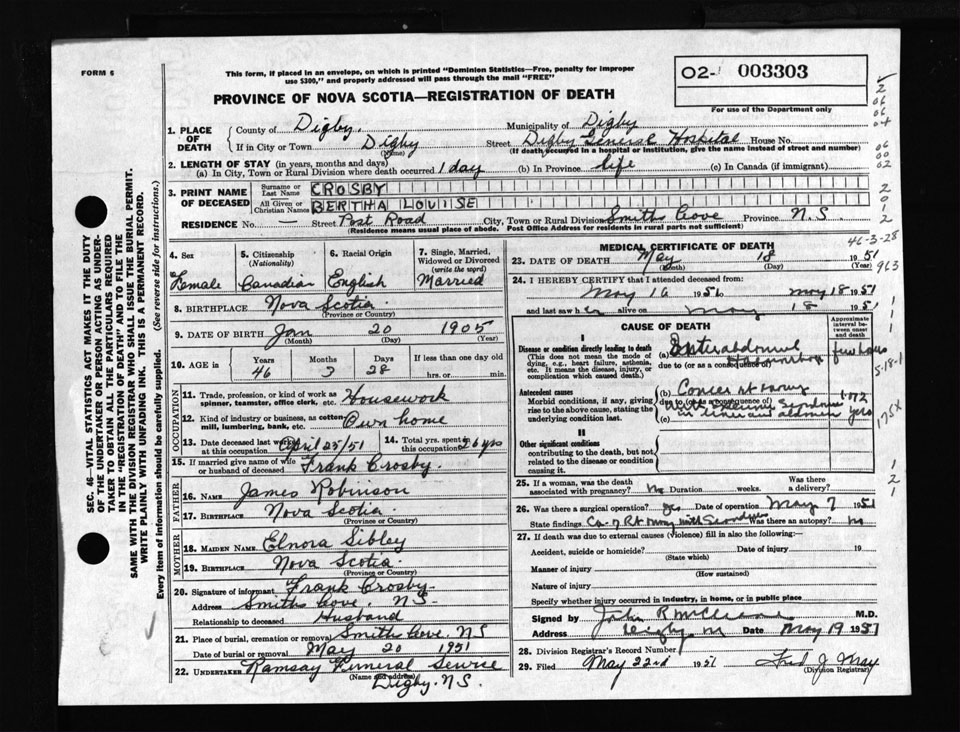 FORM 6
This form, if placed in an envelope, on which is printed "Dominion Statistics—Free, penalty for improper
use $300," and properly addressed will pass through the mail "FREE"
O2- 003303
For use of the Department only
PROVINCE OF NOVA SCOTIA—REGISTRATION OF DEATH
1. PLACE OF DEATH
County of Digby. Municipality of Digby
If in City or Town Digby (Name) Street Digby General Hospital House No.
(If death occurred in a hospital or institution, give the name instead of street and number)
2. LENGTH OF STAY (in years, months and days)
(a) In City, Town or Rural Division where death occurred 1 day (b) In Province life (c) In Canada (if immigrant)
3. PRINT NAME OF DECEASED
Surname or Last Name CROSBY
All Given or Christian Names BERTHA LOUISE
RESIDENCE No. Street Post Road City, Town or Rural Division Smiths Cove Province N.S
(Residence means usual place of abode. Post Office Address for residents in rural parts not sufficient)
4. Sex Female
5. Citizenship (Nationality) Canadian
6. Racial Origin English
7. Single, Married, Widowed or Divorced (write the word) Married
8. BIRTHPLACE Nova Scotia (Province or Country)
9. DATE OF BIRTH Jan (Month) 20 (Day) 1905 (Year)
10. AGE Years 46 Months 3 Days 28 If less than one day old hrs. or min.
OCCUPATION
11. Trade, profession, or kind of work as spinner, teamster, office clerk, etc. Housework
12. Kind of industry or business, as cotton-mill, lumbering, bank, etc. Own home
13. Date deceased last worked at this occupation April 25/51
14. Total yrs. spent in this occupation 26 yrs
15. If married give name of wife or husband of deceased Frank Crosby.
FATHER
16. NAME James Robinson
17. BIRTHPLACE Nova Scotia. (Province or Country)
MOTHER
18. MAIDEN NAME Elnora Sibley
19. BIRTHPLACE Nova Scotia (Province or Country)
20. Signature of informant Frank Crosby
Address Smiths Cove, N.S
Relationship to deceased Husband
21. Place of burial, cremation or removal Smiths Cove. N.S
Date of burial or removal May 20 1951
22. UNDERTAKER Ramsay Funeral Service
(Name and address)
Digby. N.S.
MEDICAL CERTIFICATE OF DEATH
46-3-28
23. DATE OF DEATH May (Month) 18 (Day) 1951 (Year)
963
24. I HEREBY CERTIFY that I attended deceased from
May 16 1951 May 18 1951
and last saw her alive on May 18 1951
CAUSE OF DEATH
Approximate interval between onset and death
I
Disease or condition directly leading to death
(This does not mean the mode of dying, e.g., heart failure, asthenia, etc. It means the disease, injury, or complication which caused death.)
(a)
due to (or as a consequence of) few hours
5-18-1
Antecedent causes
Morbid conditions, if any, giving rise to the above cause, stating the underlying condition last.
(b)
due to (or as a consequence of)
(c)
yrs
175X
II
Other significant conditions
contributing to the death, but not related to the disease or condition causing it.
25. If a woman, was the death associated with pregnancy? No Duration weeks. Was there a delivery?
26. Was there a surgical operation? yes Date of operation May 7 1951
State findings Was there an autopsy? no
27. If death was due to external causes (violence) fill in also the following:—
Accident, suicide or homicide? (State which) Date of injury 19
Manner of injury (How sustained)
Nature of injury
Specify whether injury occurred in industry, in home, or in public place
Signed by John R M.D.
Address Digby Date May 19 1951
28. Division Registrar's Record Number
29. Filed May 22nd 1951 Fred J. May
(Division Registrar)
SEC. 46—VITAL STATISTICS ACT MAKES IT THE DUTY
OF THE UNDERTAKER OR PERSON ACTING AS UNDER-
TAKER TO OBTAIN ALL THE PARTICULARS REQUIRED
IN THE "REGISTRATION OF DEATH" AND TO FILE THE
SAME WITH THE DIVISION REGISTRAR WHO SHALL ISSUE THE BURIAL PERMIT.
WRITE PLAINLY WITH UNFADING INK. THIS IS A PERMANENT RECORD.
Every item of information should be carefully supplied. (See reverse side for instructions.)